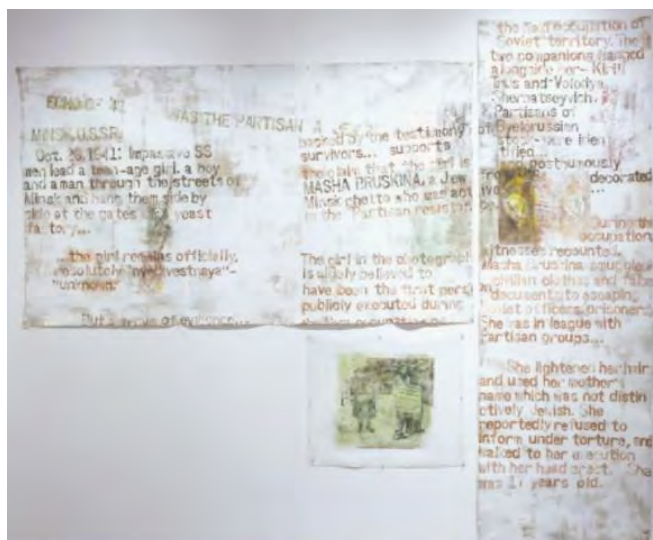 MINSK, U.S.S.R.
Oct. 26, 1941: Impassive SS
men lead a teen-age girl, a boy
and a man through the streets of
Minsk and hang them side by
side at the gates of a yeast
factory...
...the girl remains officially,
resolutely "nyeizvestnaya"-
"unknown."
But a series of evidence...
WAS THE PARTISAN A
backed by the testimony of
survivors... supports
the claim that the girl is
MASHA BRUSKINA, a Jew
Minsk ghetto who was act
in the Partisan resistan
The girl in the photograph
is widely believed to
have been the first pers
publicly executed during
the Nazi occupation of
Soviet territory. The
two companions hanged
alongside her- Kirill
Trus and Volodya
Sherbatseyvich,
Partisans of
Byelorussian
were
posthumously
decorated
...
During the
occupation,
witnesses recounted,
Masha Bruskina smuggled
civilian clothes and false
documents to escaping
Soviet officers, prisoners
She was in league with
Partisan groups...
She lightened her hair
and used her mother's
name which was not distin
ctively Jewish. She
reportedly refused to
inform under torture, and
walked to her execution
with her head erect. She
was 17 years old.